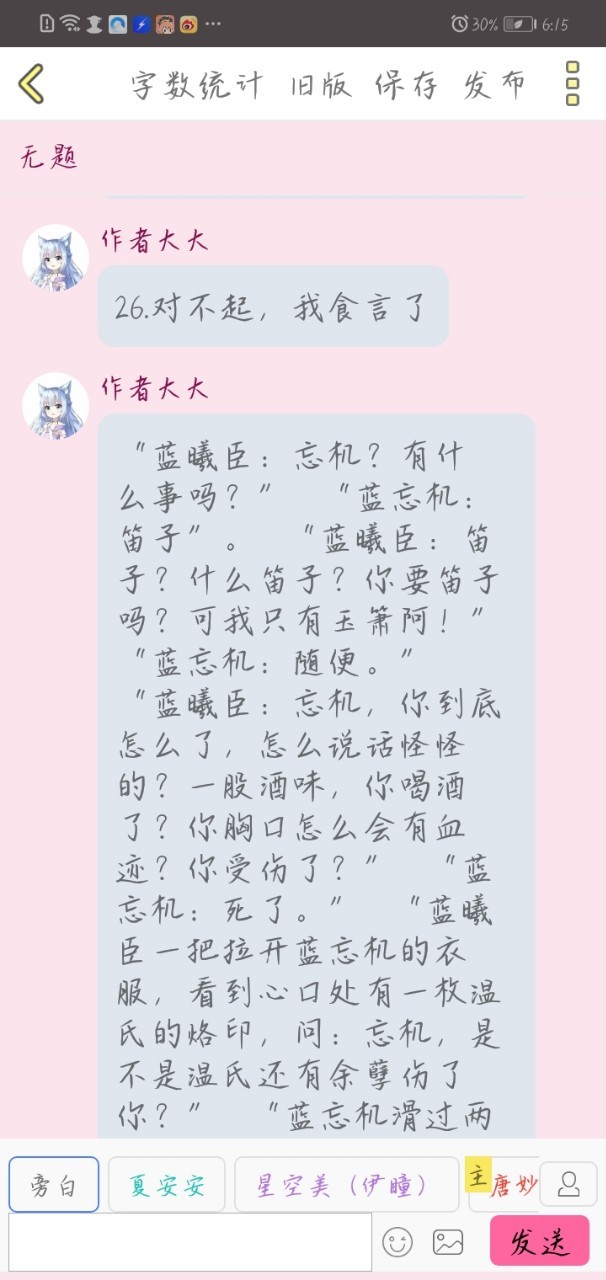 30% 6:15
字数统计 旧版 保存 发布
无题
作者大大
26.对不起，我食言了
作者大大
“蓝曦臣：忘机？有什
么事吗？” “蓝忘机：
笛子”。 “蓝曦臣：笛
子？什么笛子？你要笛子
吗？可我只有玉箫阿！”
“蓝忘机：随便。”
“蓝曦臣：忘机，你到底
怎么了，怎么说话怪怪
的？一股酒味，你喝酒
了？你胸口怎么会有血
迹？你受伤了？” “蓝
忘机：死了。” “蓝曦
臣一把拉开蓝忘机的衣
服，看到心口处有一枚温
氏的烙印，问：忘机，是
不是温氏还有余孽伤了
你？” “蓝忘机滑过两
旁白 夏安安 星空美（伊瞳） 主 唐妙
发送